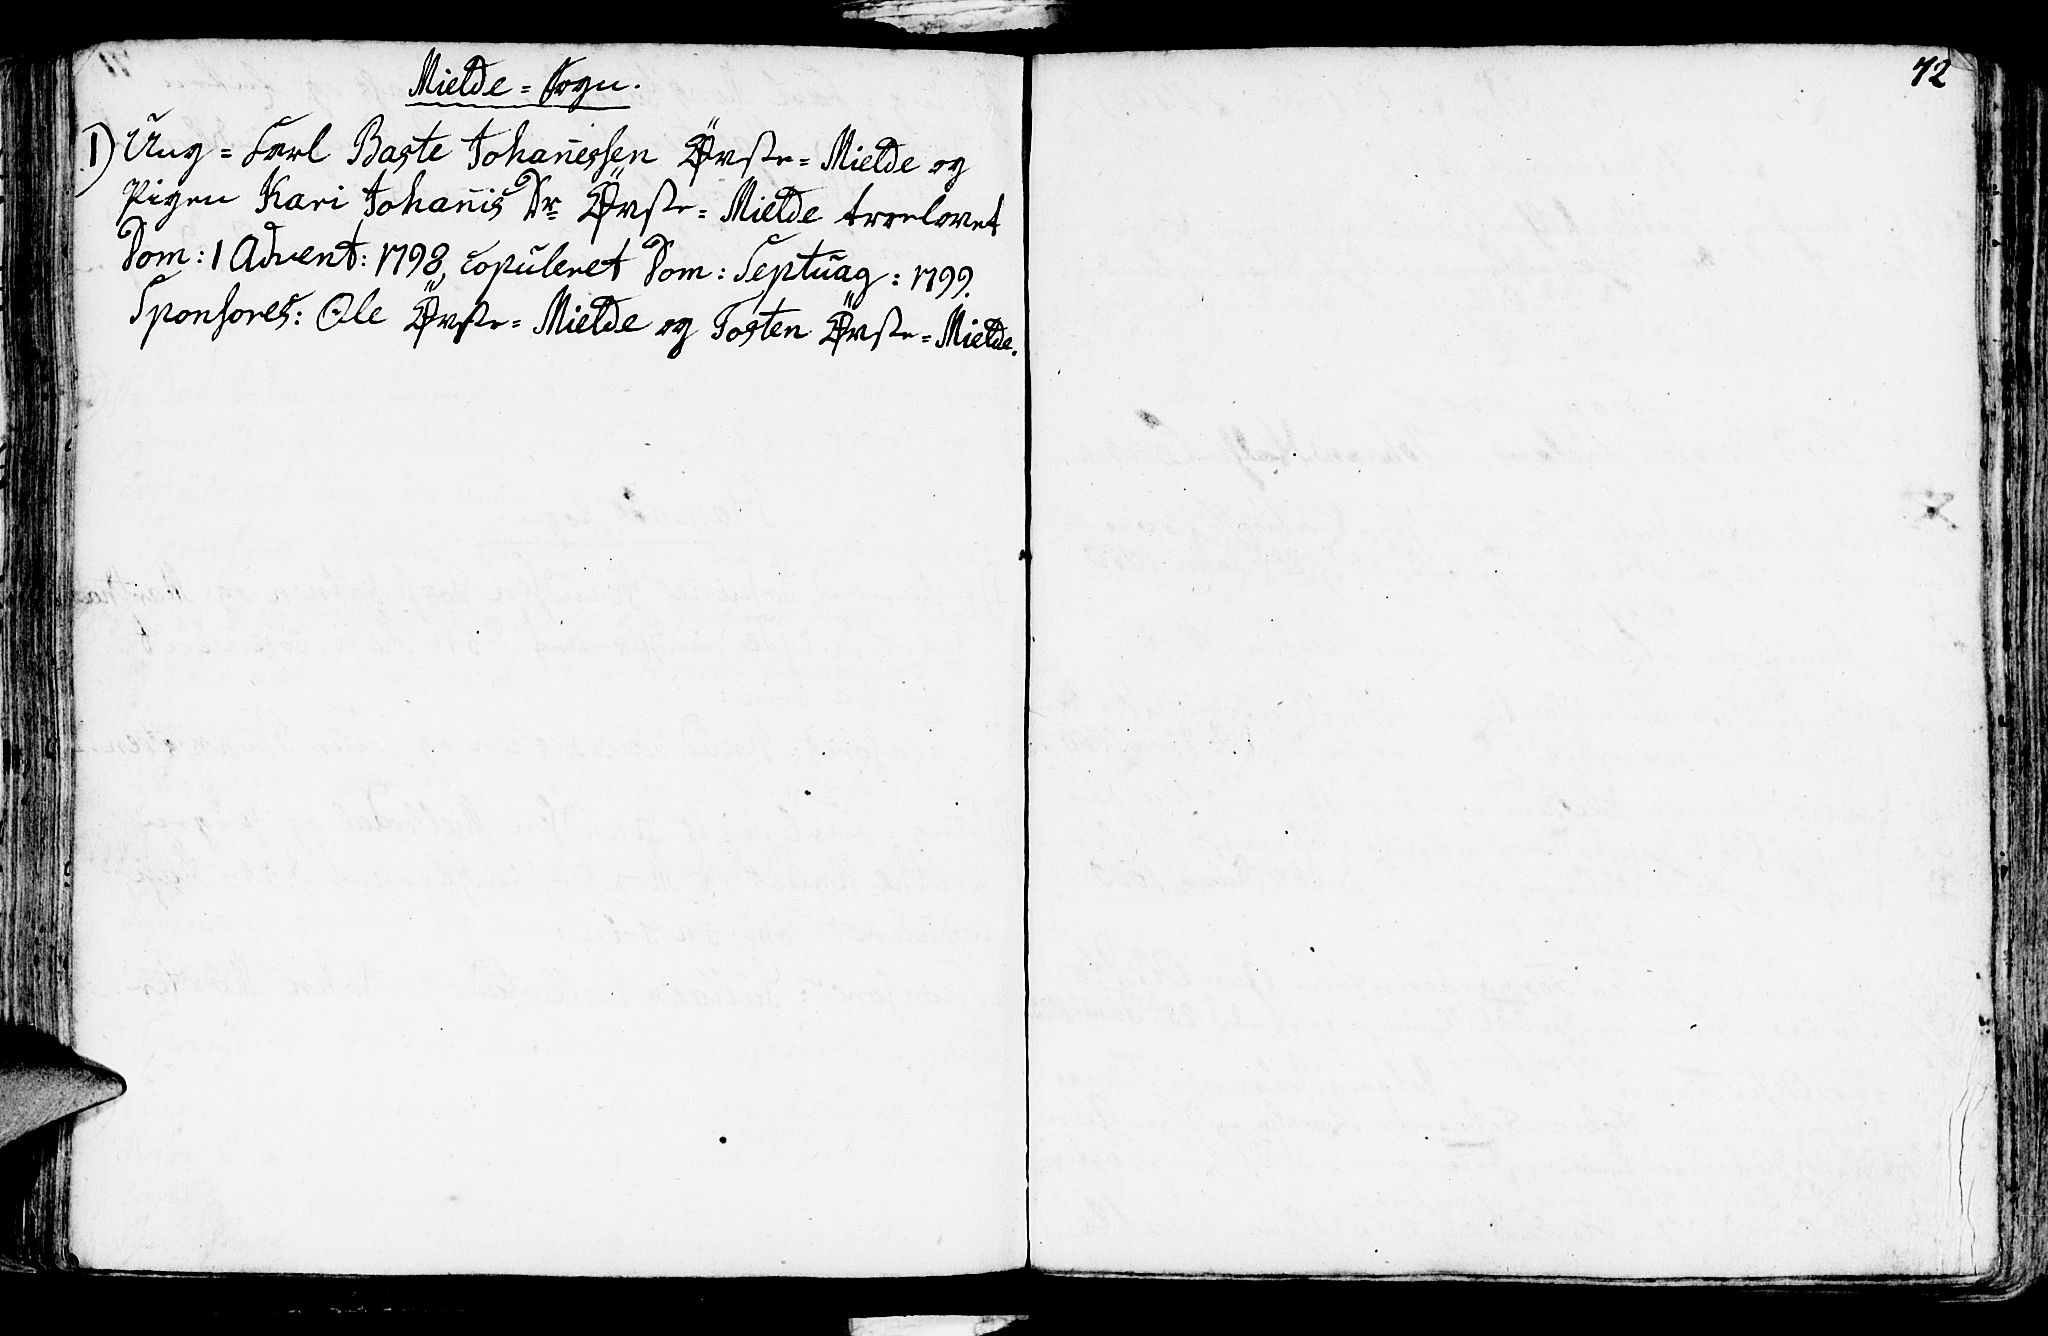 Mielde = Sogn.
1) Ung = Karl Baste Johañessen Øvste = Mielde og
Pigen Kari Johañis Dr Øvste = Mielde troelovet
Dom: 1 Advent: 1798, copuleret Dom: Septuag: 1799.
Sponsores: Ole Øvste = Mielde og Tosten Øvste = Mielde.
72